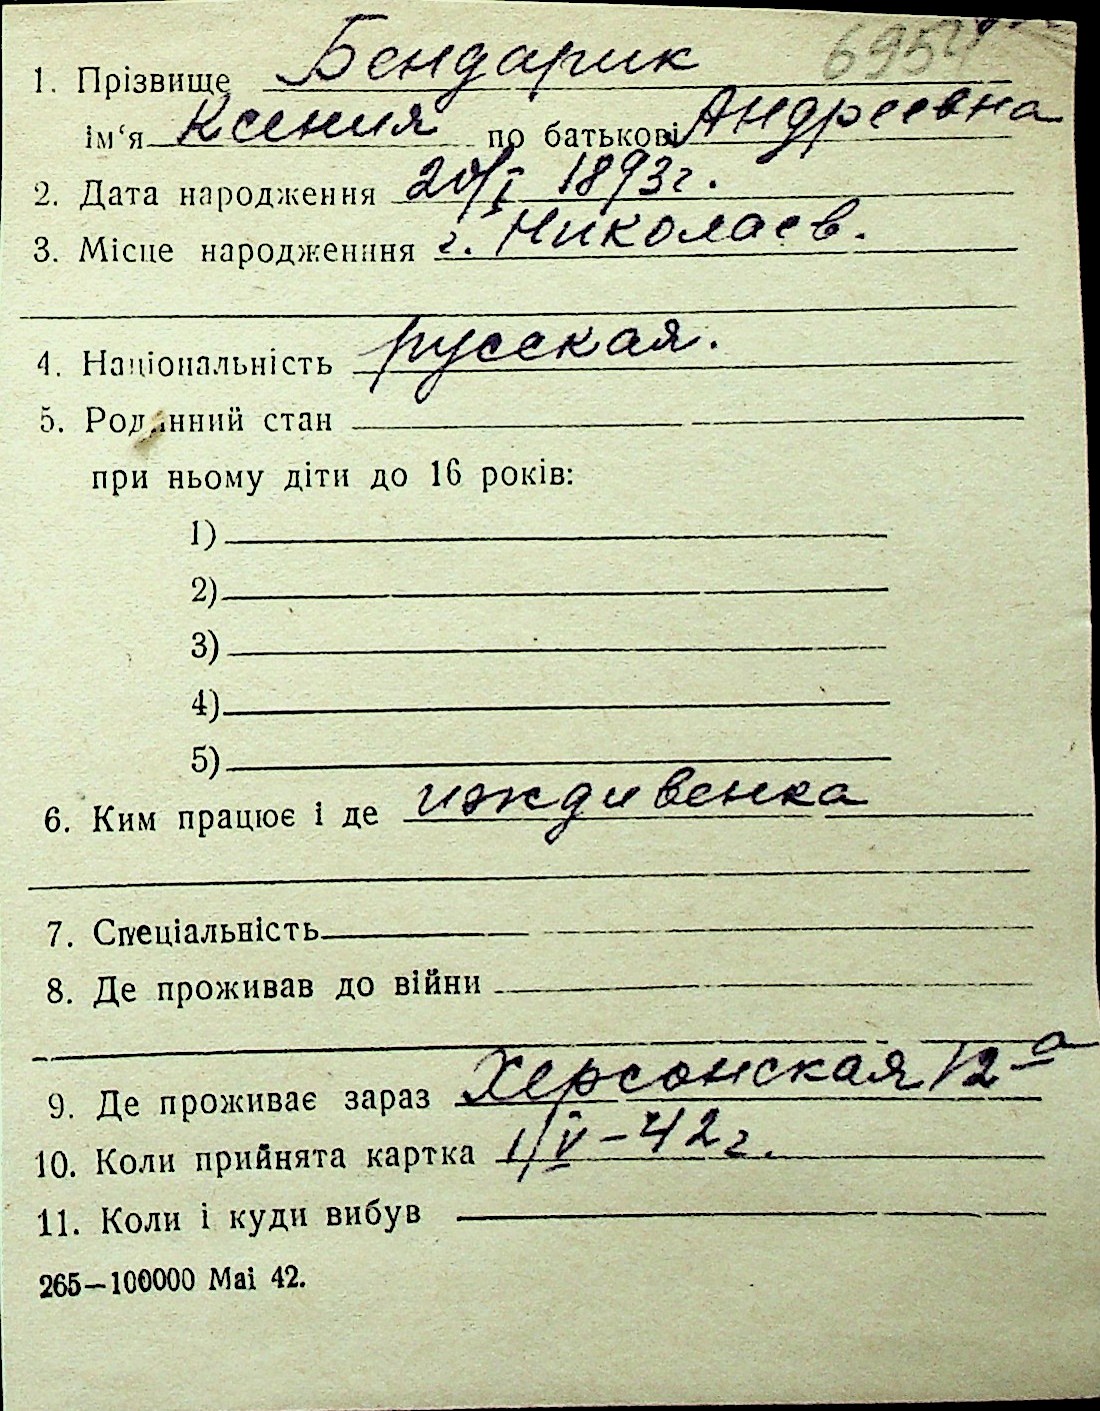 6954
1. Прізвище Бендарик
ім‘я Ксения по батькові Андреевна
2. Дата народження 20/I 1893г.
3. Місце народженння г. Николаев.
4. Національність русская.
5. Родинний стан
при ньому діти до 16 років:
1)
2)
3)
4)
5)
6. Ким працює і де иждивенка
7. Спеціальність
8. Де проживав до війни
9. Де проживає зараз Херсонская 12а
10. Коли прийнята картка 1/V–42г.
11. Коли і куди вибув
265—100000 Маі 42.